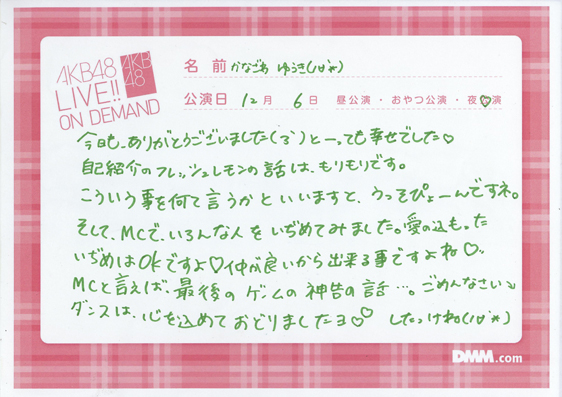 AKB48
LIVE!!
ON DEMAND
AKB
48
名 前 かなざわ ゆうき(ノ∀`*)
公演日 12月 6日 昼公演・おやつ公演・夜♡演
今日も、ありがとうございました(3`)と一っても幸せでした♡
自己紹介のフレッシュレモンの話は、もりもりです。
こういう事を何て言うかといいますと、うっそぴょーんですネ。
そして、MCで、いろんな人をいぢめてみました。愛の込もった
いぢめはOKですよ♡仲が良いから出来る事ですよね♡
MCと言えば、最後のゲームの神告の話…。ごめんなさい
ダンスは、心を込めておどりましたヨ♡♡ したっけね(ノ∀`*)
DMM.com